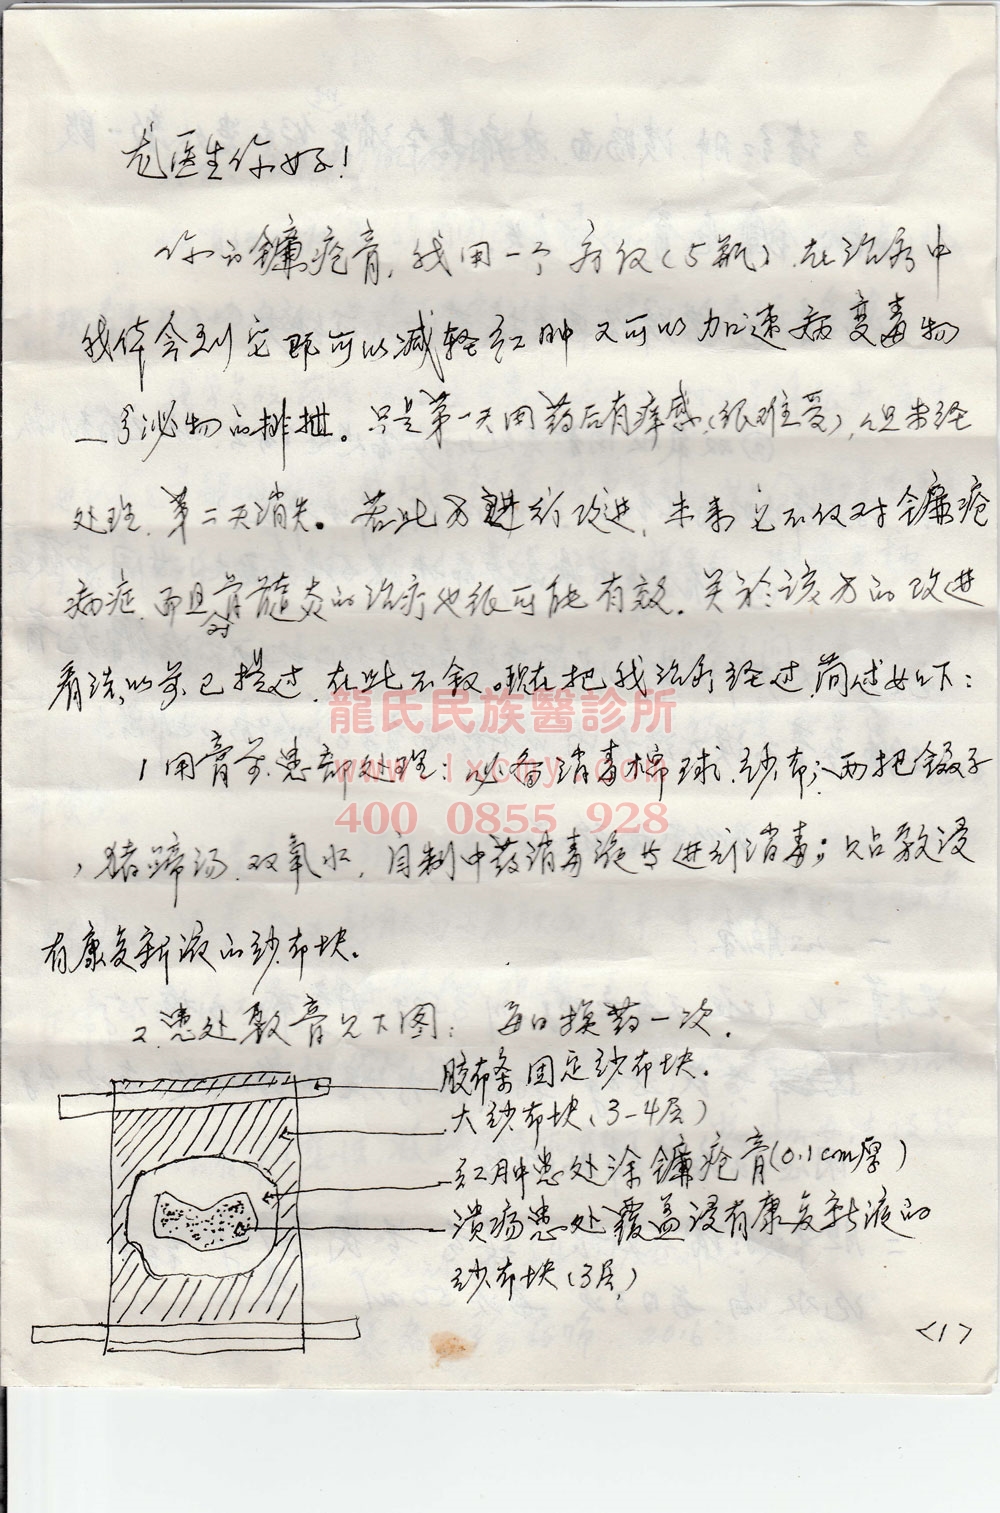 龙医生你好!
你的镰疮膏,我用一个疗程(5瓶).在治疗中
我体会到它既可以减轻红肿又可以加速病变毒物
分泌物的排泄。只是第一天用药后有痒感(很难受),但未经
处理,第二天消失。若此方进行改进,未来它不仅对镰疮
病症,而且对骨髓炎的治疗也很可能有效.关於该方的改进
看法,以前已提过,在此不叙。现在把我治疗经过,简述如下:
龍氏民族醫診所
1 用膏前患部处理:必备消毒棉球,纱布;两把镊子
400 0855 928
,猪蹄汤,双氧水,自制中药消毒液进行消毒;
有康复新液的纱布块。
2.患处敷膏见下图: 每日换药一次.
胶布条固定纱布块.
大纱布块(3-4层)
红肿患处涂镰疮膏(0.1cm厚)
溃疡患处覆盖浸有康复新液的
纱布块(3层)
<1>